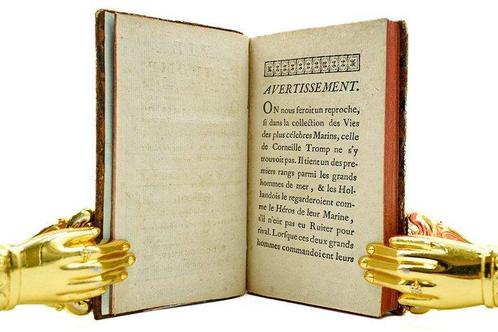 AVERTISSEMENT.
ON nous feroit un reproche,
ſi dans la collection des Vies
des plus célebres Marins, celle
de Corneille Tromp ne s'y
trouvoit pas. Il tient un des pre-
miers rangs parmi les grands
hommes de mer, & les Hol-
landois le regarderoient com-
me le Héros de leur Marine,
s'il n'eût pas eu Ruiter pour
rival. Lorſque ces deux grands
hommes commandoient leurs